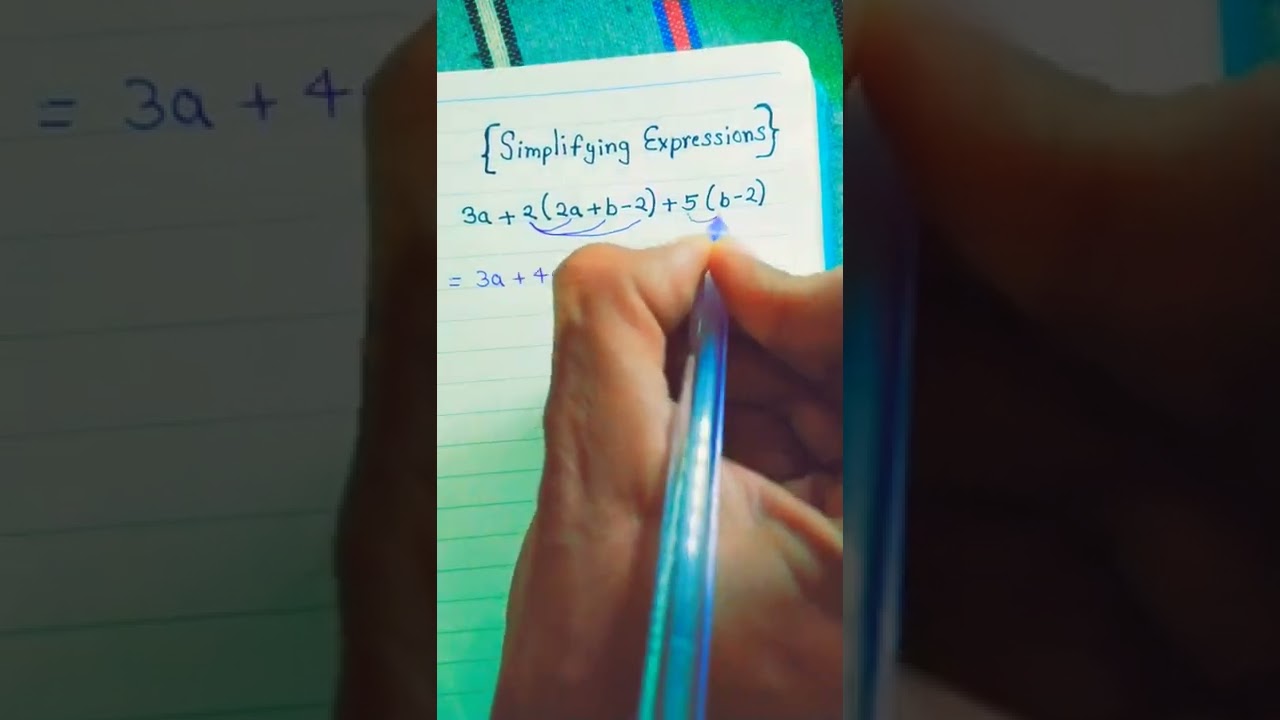 {Simplifying Expressions}
3a + 2(2a+b-2) + 5(b-2)
= 3a + 4